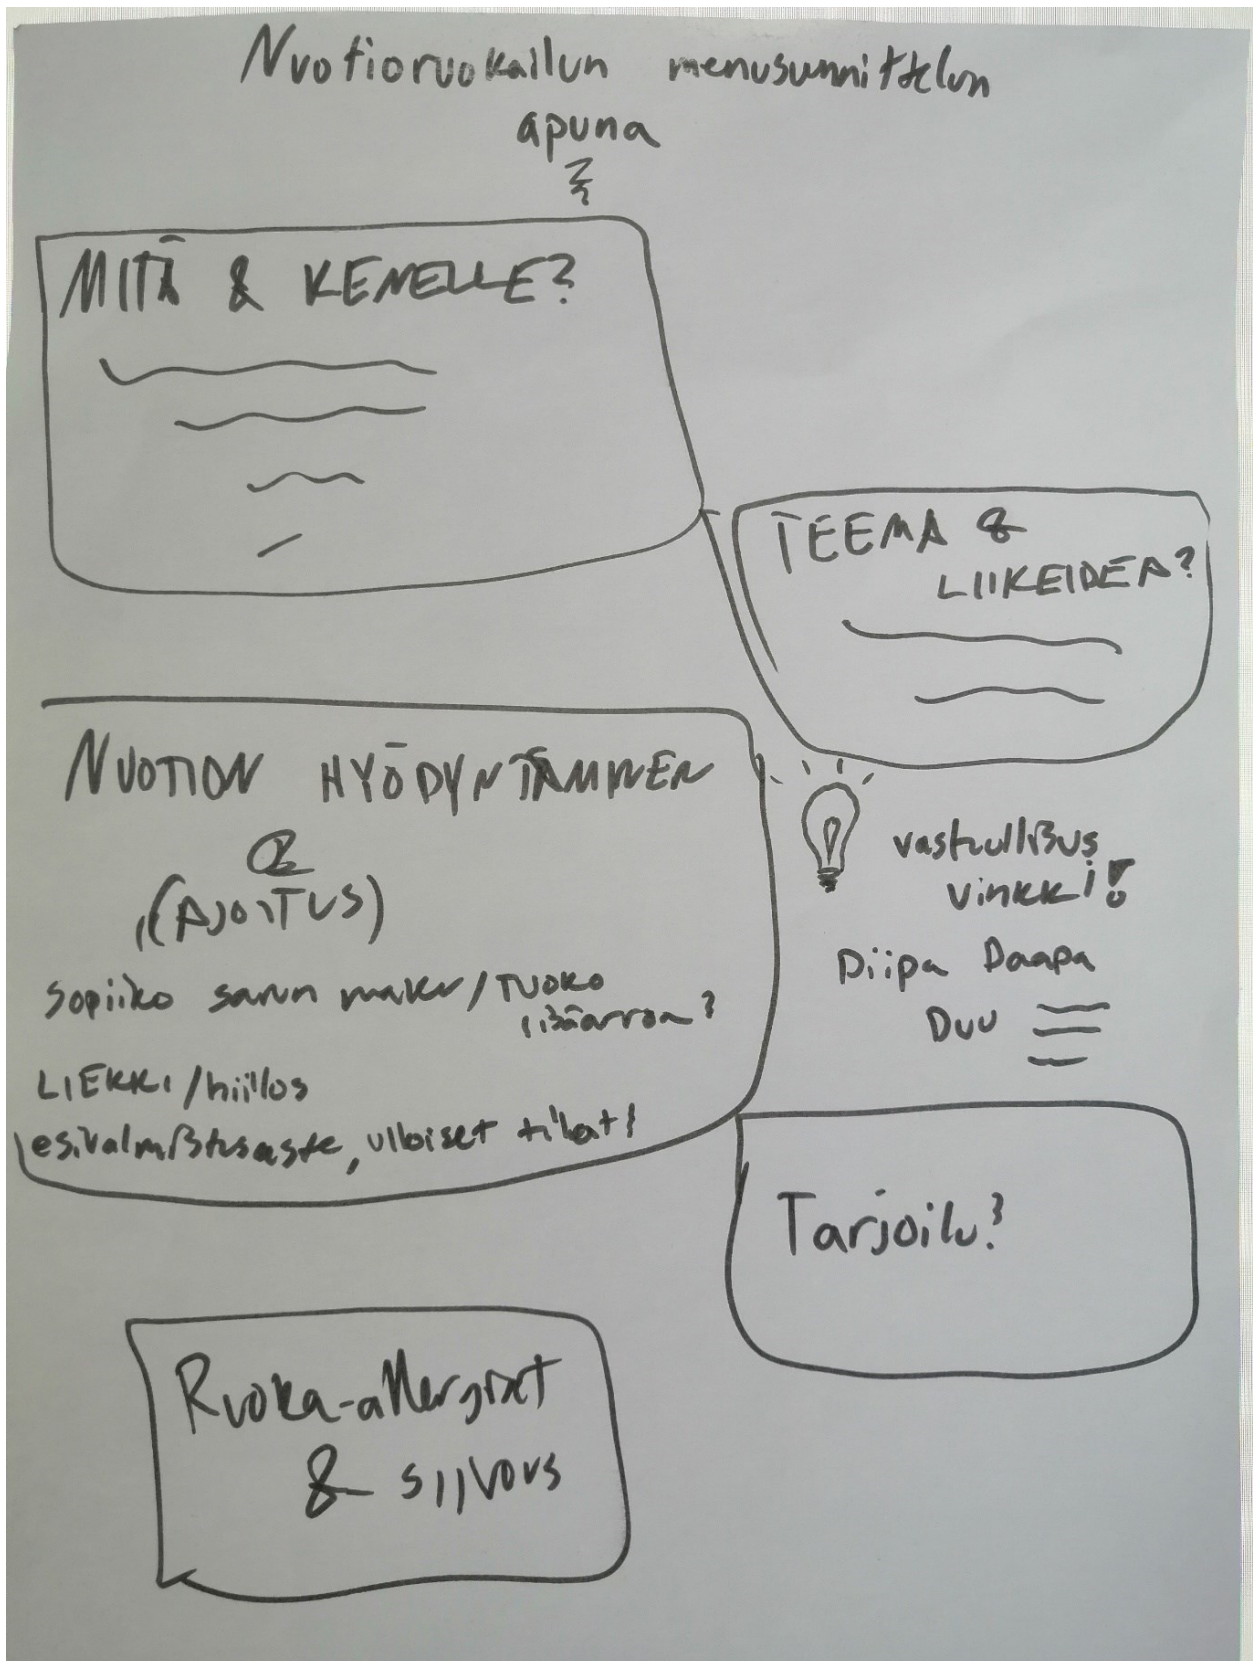 Nuotioruokailun menusunnittelun
apuna
MITÄ & KENELLE?
TEEMA &
LIIKEIDEA?
NUOTION HYÖDYNTÄMINEN
&
(AJOITUS)
Sopiiko savun maku/TUOKO
lisäarvoa?
LIEKKI/hiillos
esivalmistusaste, ulkoiset tilat?
vastuullisuus
vinkki!
Diipa Daapa
Duu
Tarjoilu?
Ruoka-allergiat
& SIIVOUS